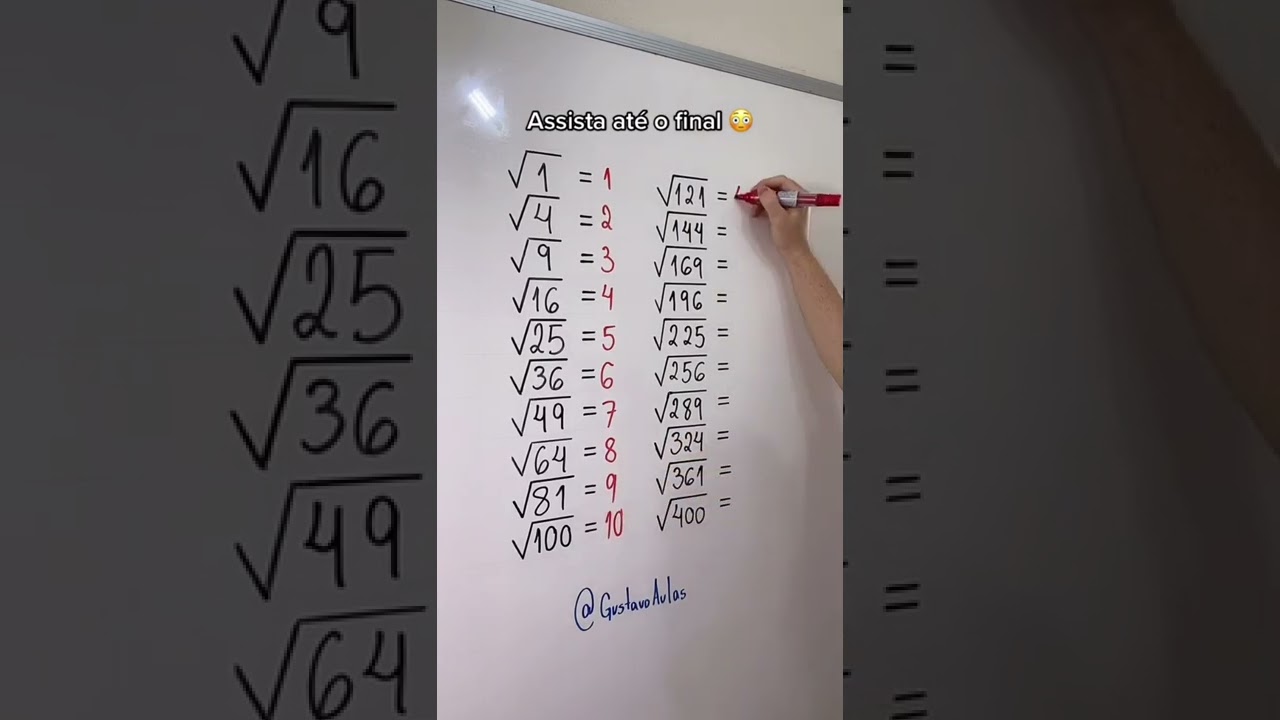 Assista até o final 😳
√1 = 1
√4 = 2
√9 = 3
√16 = 4
√25 = 5
√36 = 6
√49 = 7
√64 = 8
√81 = 9
√100 = 10
√121 =
√144 =
√169 =
√196 =
√225 =
√256 =
√289 =
√324 =
√361 =
√400 =
@GustavoAulas
√9
√16
√25
√36
√49
√64
=
=
=
=
=
=
=